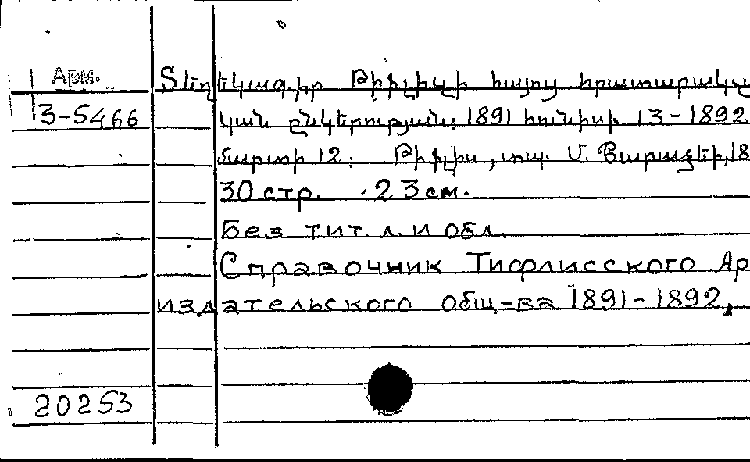 Арм. Տեղեկագիր Թիֆլիզի հայոց հրատարակչ
3-5466 կան ընկերության: 1891 հունիսի 13-1892
մարտի 12. Թիֆլիս, տպ. Մ. Շարաձեի, 18
30 стр. 23 см.
Без тит. л. и обл.
Справочник Тифлисского Ар
издательского общ-ва 1891-1892,
20253